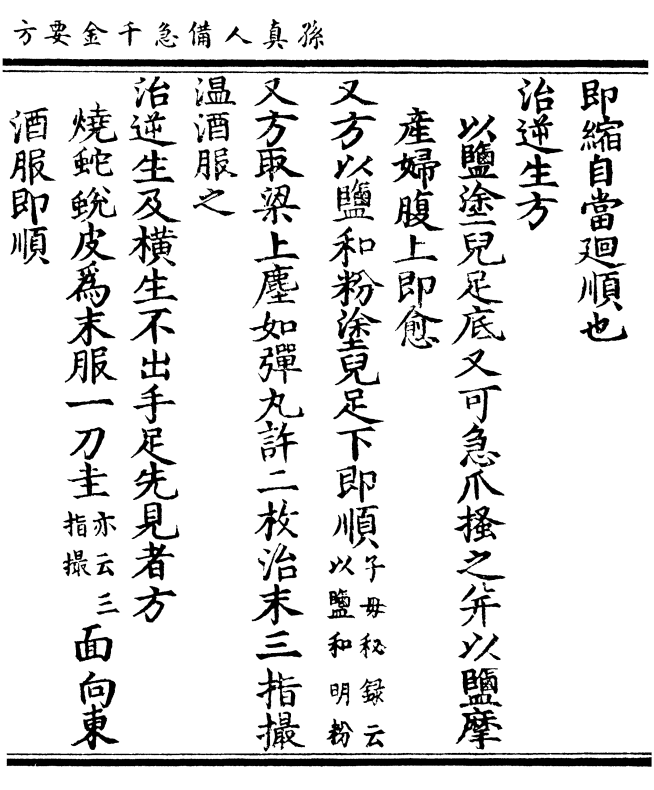 孫真人備急千金要方
即縮自當廻順也
治逆生方
以鹽塗兒足底又可急爪搔之并以鹽摩
產婦腹上即愈
又方以鹽和粉塗兒足下即順子母秘録云以鹽和明粉
又方取梁上塵如彈丸許二枚治末三指撮
温酒服之
治逆生及橫生不出手足先見者方
燒蛇蛻皮爲末服一刀圭亦云三指撮面向東
酒服即順